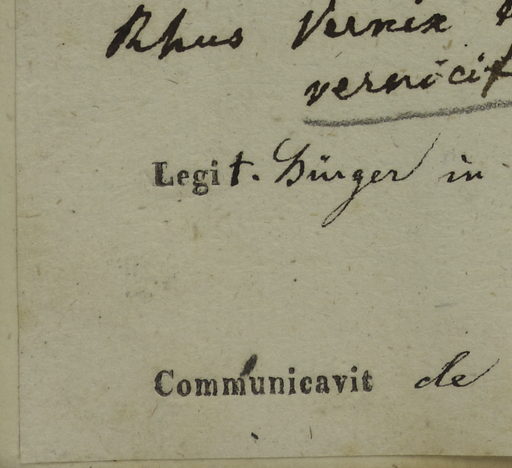 Rhus Vernix
vernicif
Legit. Bürger in
Communicavit de